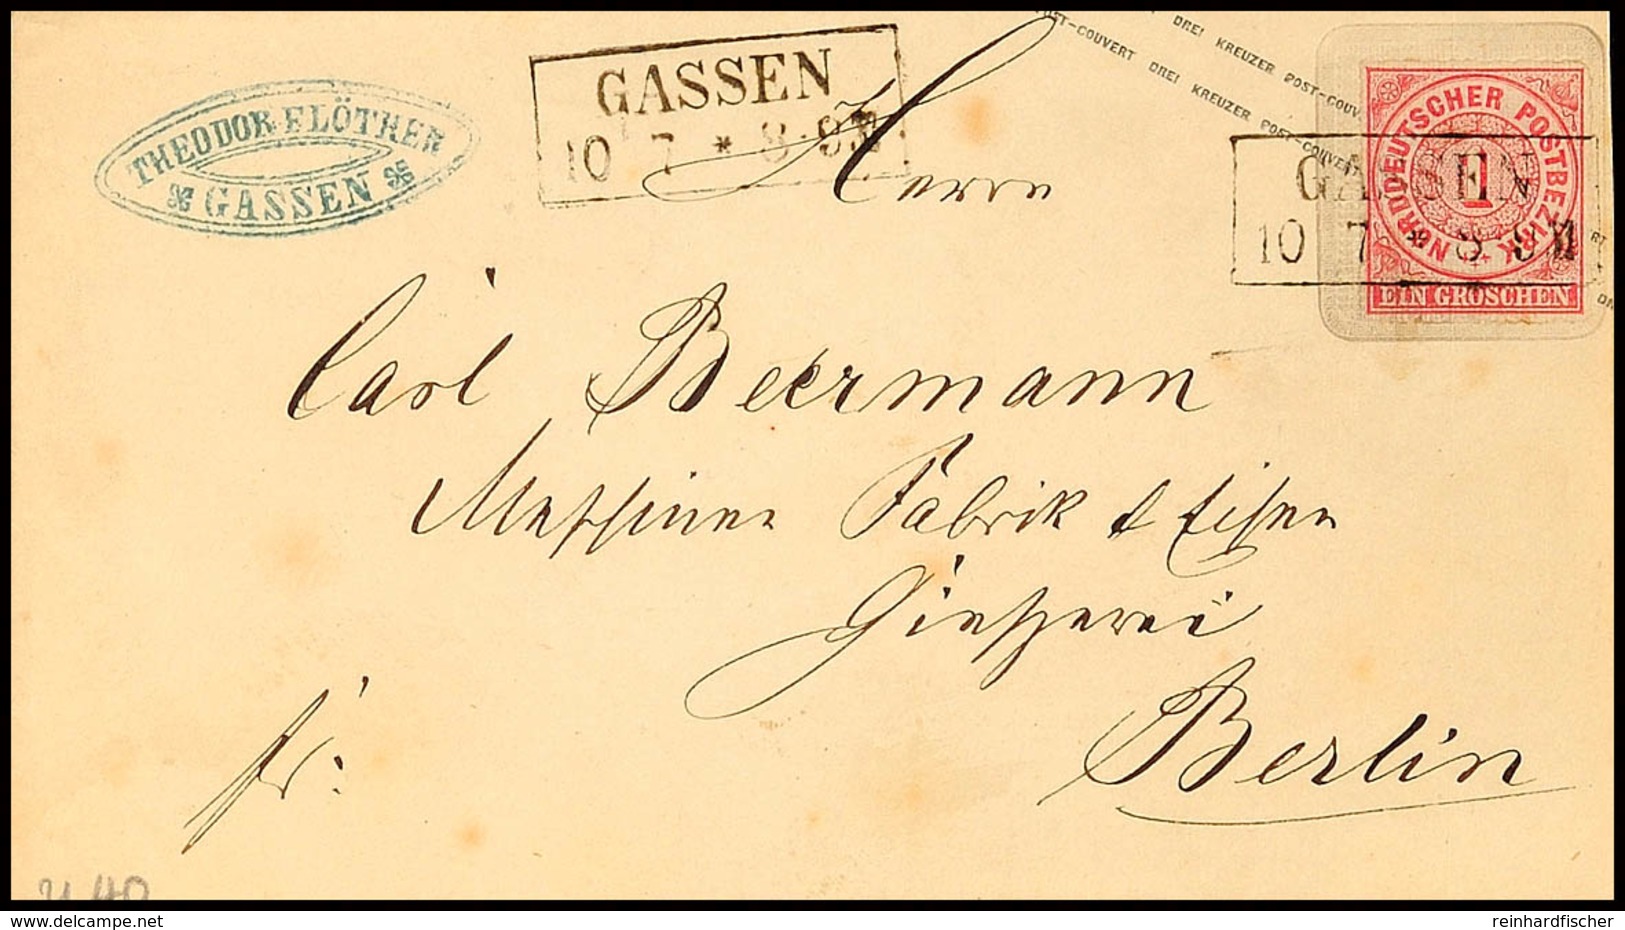 POST-COUVERT DREI KREUZER POST-COUV
DREI KREUZER POST-COUVERT
THEODOR FLÖTHER
GASSEN
GASSEN
10 7 * 8-9 N
NORDDEUTSCHER POSTBEZIRK
1
EIN GROSCHEN
GASSEN
10 7 * 8 9 N
Herrn
Carl Beermann
Maschinen Fabrik & Eisen
Gießerei
Berlin
fr:
U 40
www.delcampe.net
reinhardfischer